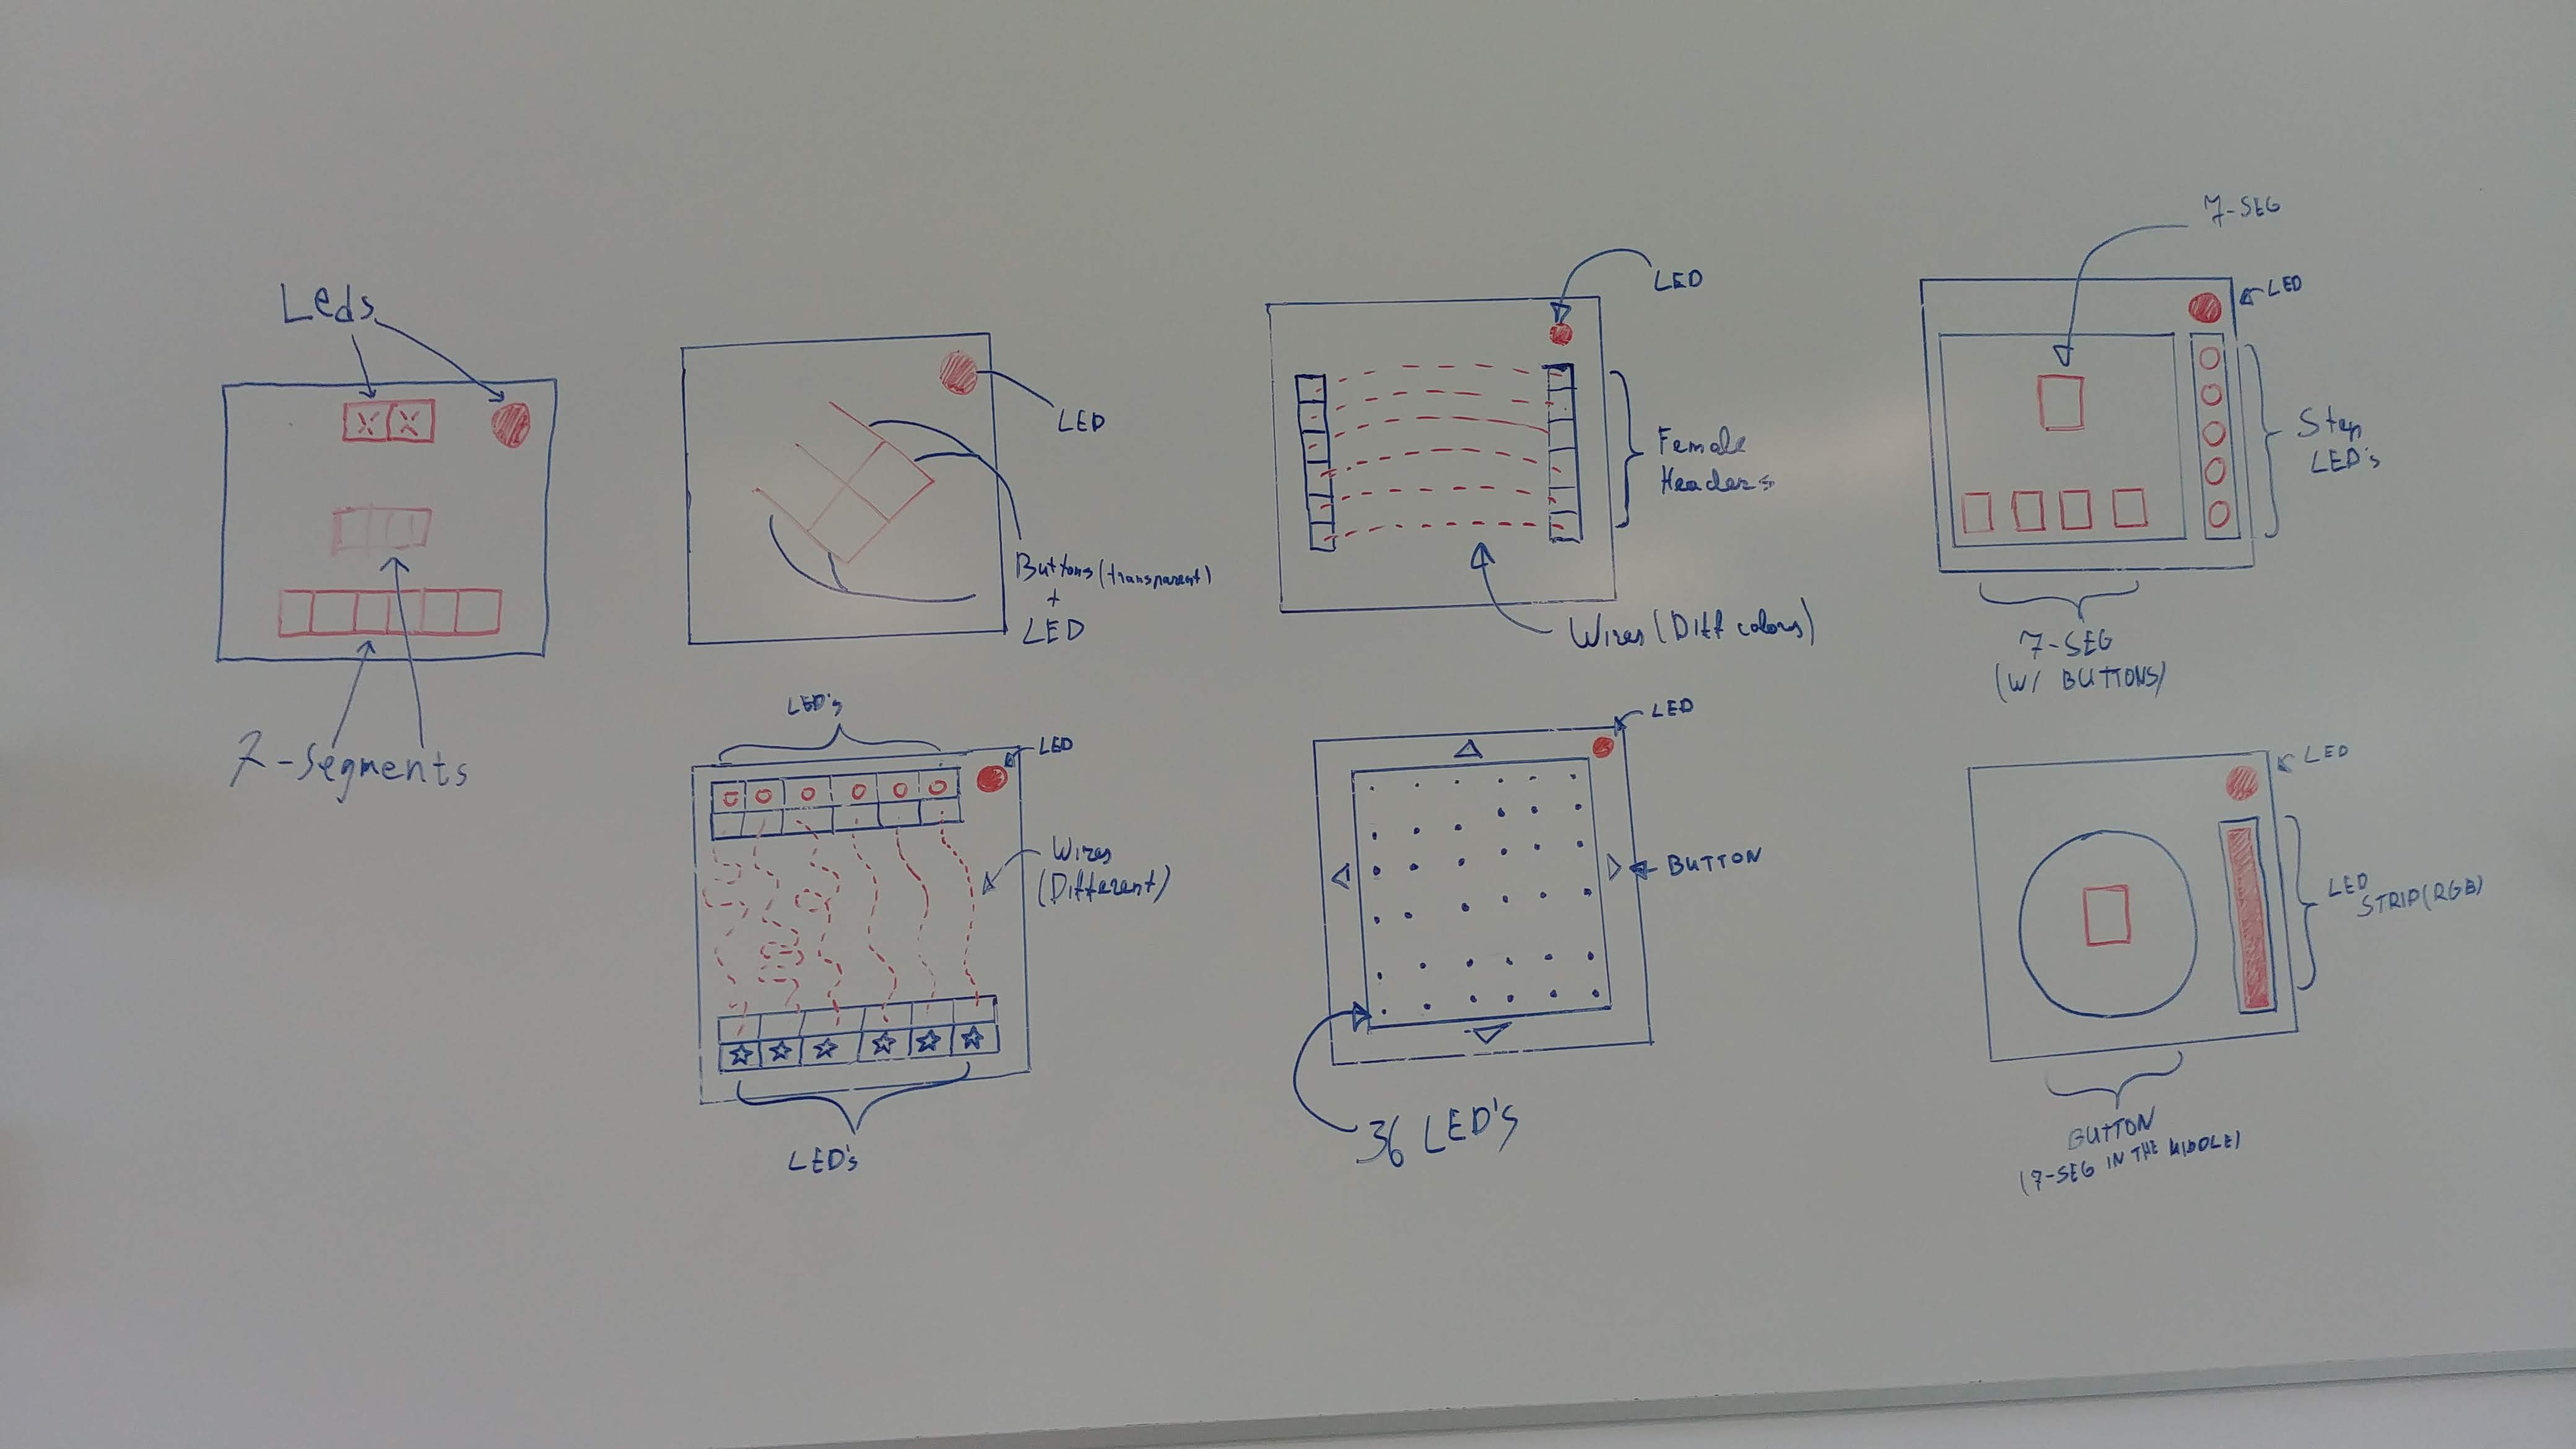 Leds
7-Segments
LED
Buttons (transparent)
+
LED
LED
Female
Headers
Wires (Diff colors)
7-SEG
LED
Step
LED's
7-SEG
(W/ BUTTONS)
LED's
LED
Wires
(Different)
LED's
LED
BUTTON
36 LED'S
LED
LED
STRIP (RGB)
BUTTON
(7-SEG IN THE MIDDLE)